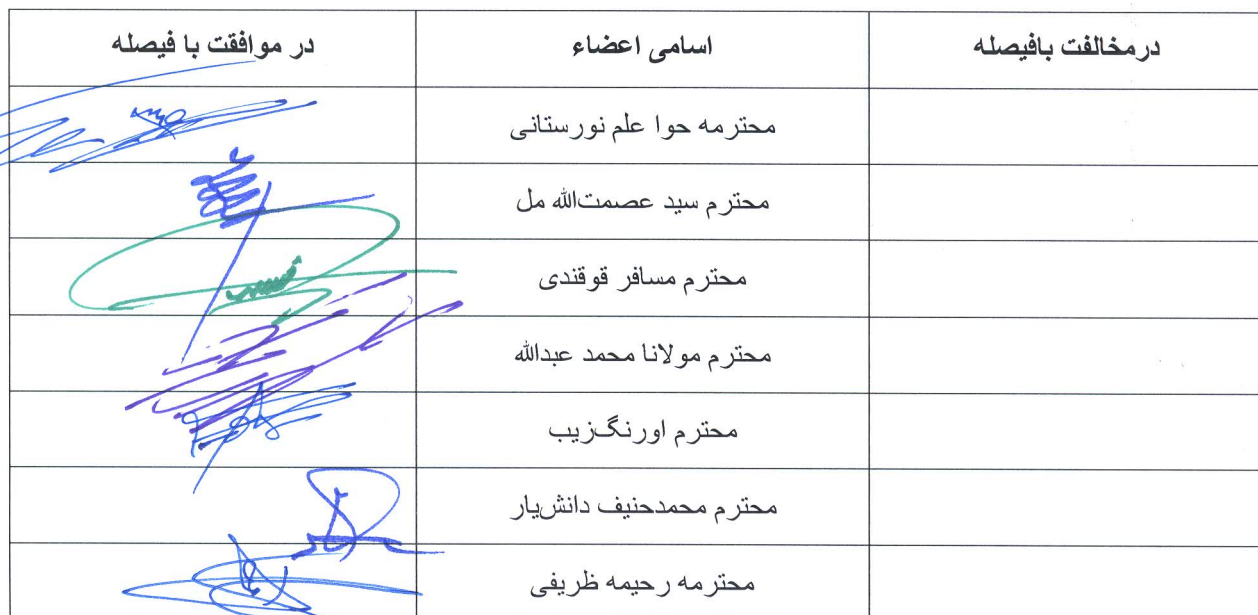 درمخالفت بافیصله
اسامی اعضاء
در موافقت با فیصله
محترمه حوا علم نورستانی
محترم سید عصمت‌الله مل
محترم مسافر قوقندی
محترم مولانا محمد عبدالله
محترم اورنگ‌زیب
محترم محمدحنیف دانش‌یار
محترمه رحیمه ظریفی